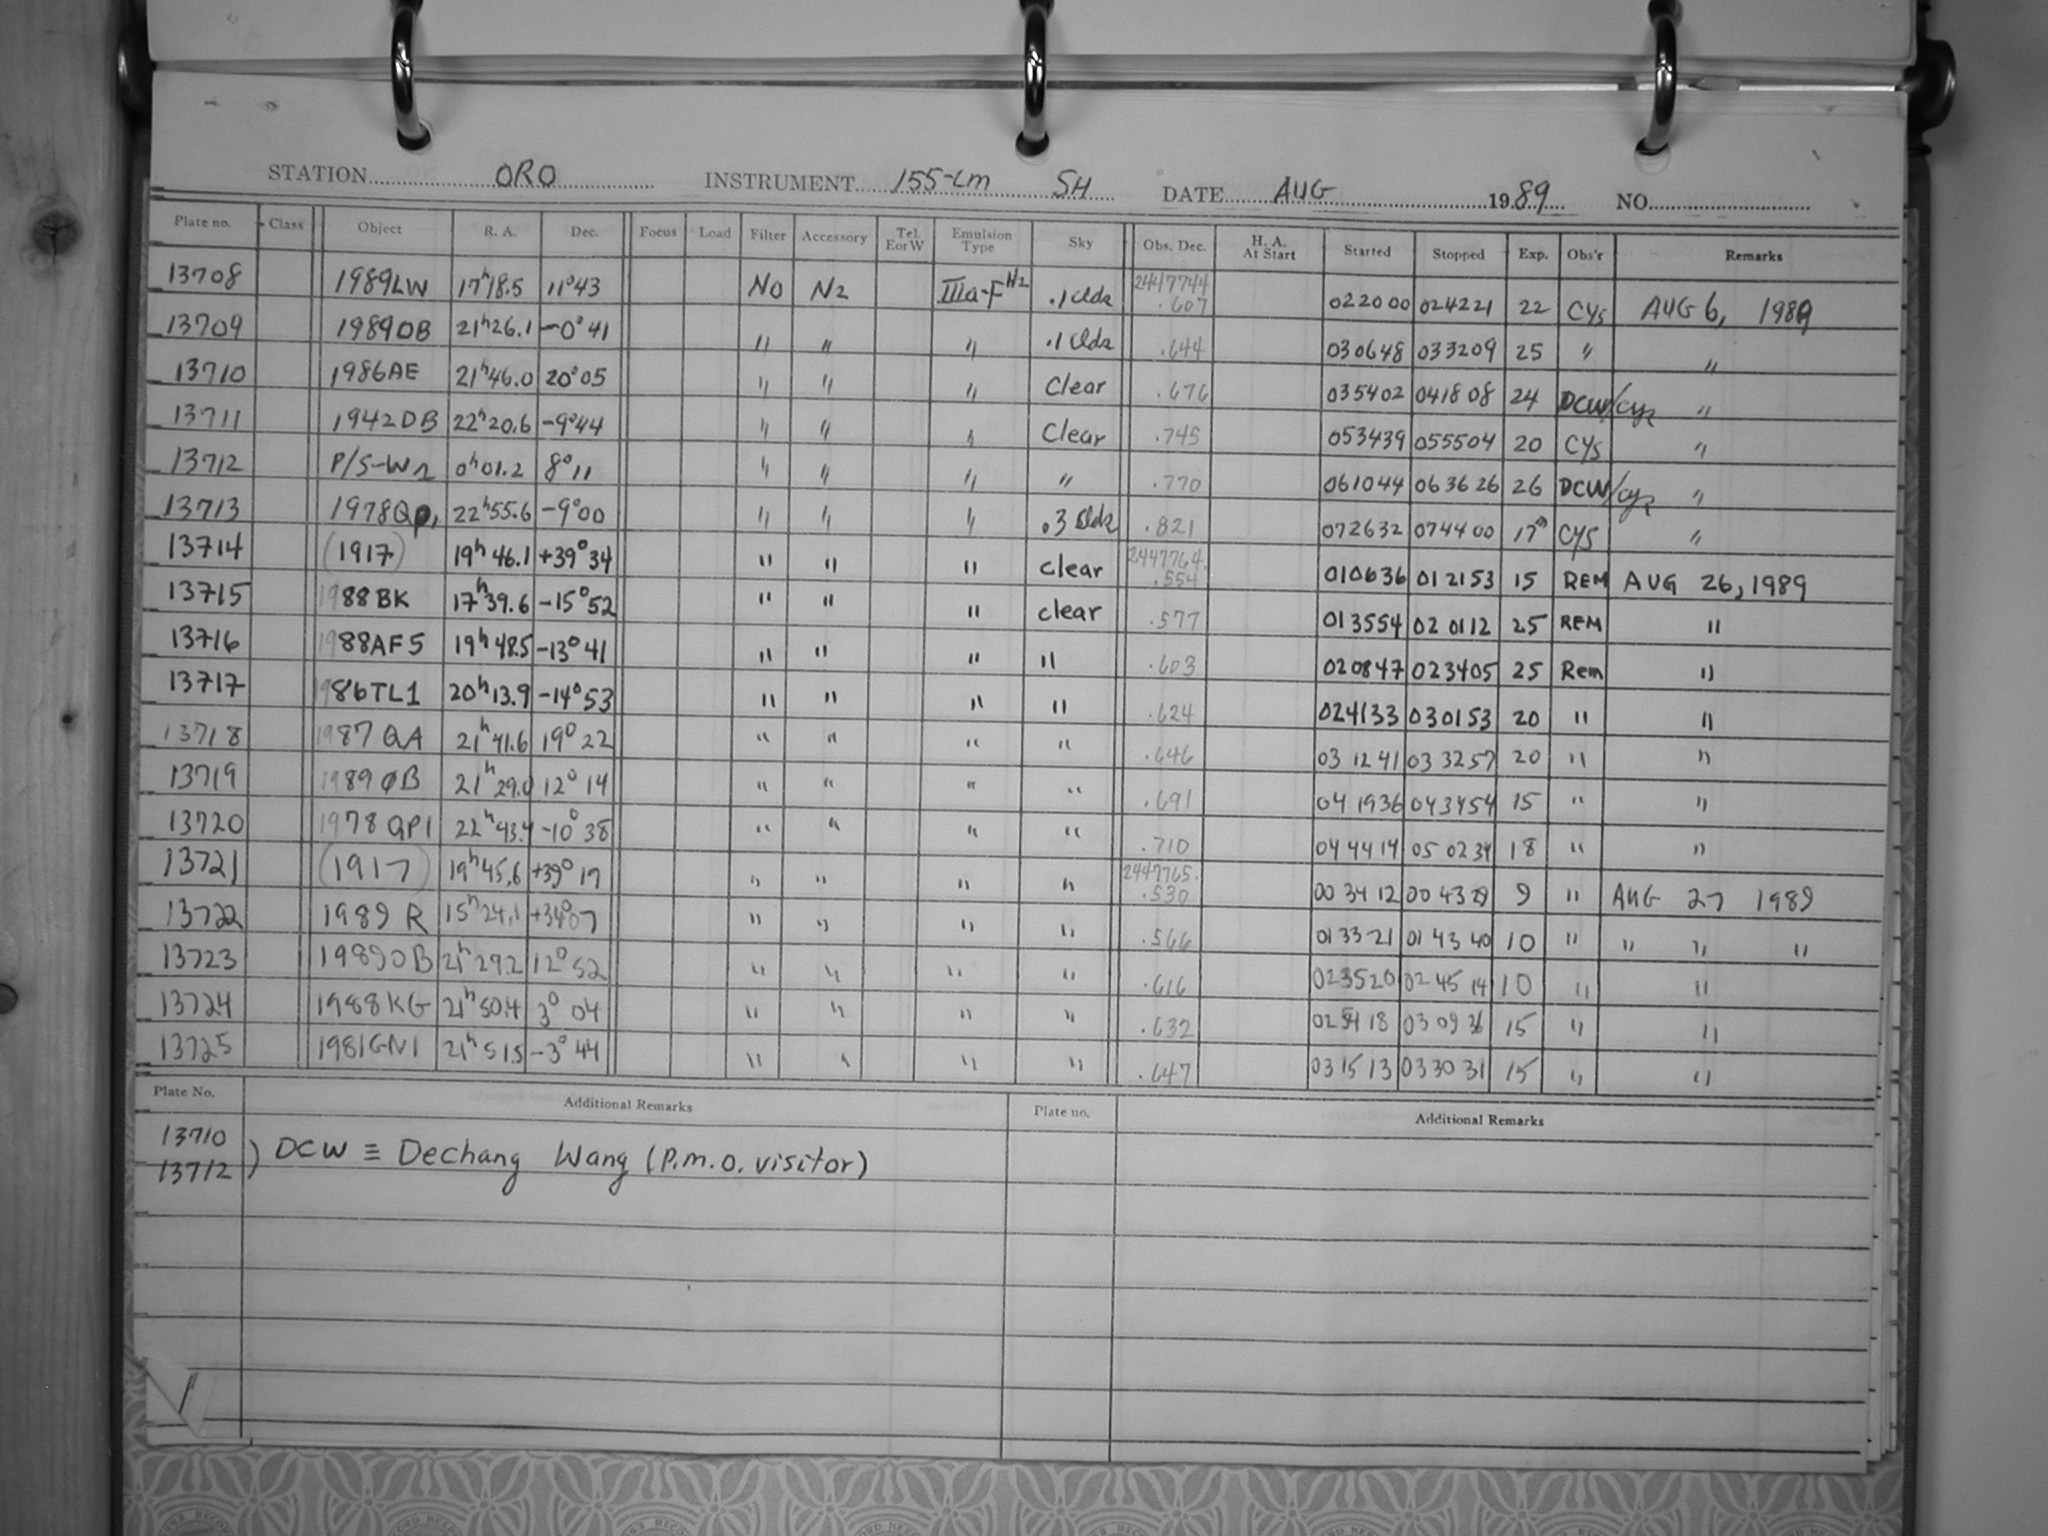 STATION ORO INSTRUMENT 155-cm SH DATE AUG 1989 NO.
Plate no. Class Object R. A. Dec. Focus Load Filter Accessory Tel. E or W Emulsion Type Sky Obs. Dec. H. A. At Start Started Stopped Exp. Obs'r Remarks
13708 1989LW 17h18.5 11°43 No N2 IIIa-F N2 .1 Clds 2447744.607 022000 024221 22 CYS AUG 6, 1989
13709 1989OB 21h26.1 -0°41 " " " .1 Clds .644 030648 033209 25 " "
13710 1986AE 21h46.0 20°05 " " " Clear .676 035402 041808 24 DCW/CYS "
13711 1942DB 22h20.6 -9°44 " " " Clear .745 053439 055504 20 CYS "
13712 P/S-W1 0h01.2 8°11 " " " " .770 061044 063626 26 DCW/CYS "
13713 1978QP1 22h55.6 -9°00 " " " .3 Clds .821 072632 074400 17m CYS "
13714 (1917) 19h46.1 +39°34 " " " clear 2447764.554 010636 012153 15 REM AUG 26, 1989
13715 1988BK 17h39.6 -15°52 " " " clear .577 013554 020112 25 REM "
13716 1988AF5 19h48.5 -13°41 " " " " .603 020847 023405 25 Rem "
13717 1986TL1 20h13.9 -14°53 " " " " .624 024133 030153 20 " "
13718 1987QA 21h41.6 19°22 " " " " .646 031241 033257 20 " "
13719 1989ØB 21h29.0 12°14 " " " " .691 041936 043454 15 " "
13720 1978QP1 22h43.4 -10°38 " " " " .710 044414 050234 18 " "
13721 (1917) 19h45.6 +39°17 " " " " 2447765.530 003412 004329 9 " AUG 27 1989
13722 1989 R 15h24.1 +34°07 " " " " .566 013321 014340 10 " " " "
13723 1989OB 21h29.2 12°52 " " " " .616 023520 024514 10 " "
13724 1988KG 21h50.4 3°04 " " " " .632 025418 030936 15 " "
13725 1981GN1 21h51.5 -3°44 " " " " .647 031513 033031 15 " "
Plate No. Additional Remarks Plate no. Additional Remarks
13710
13712 ) DCW ≡ Dechang Wang (P.M.O. visitor)